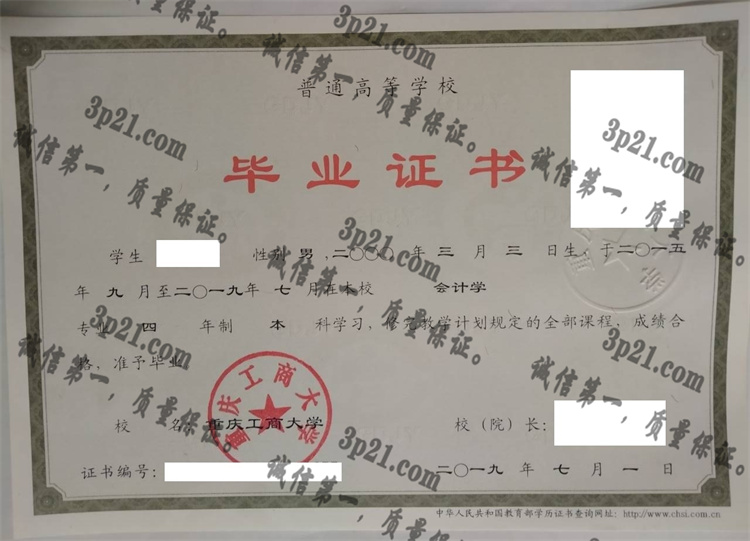 普通高等学校
毕业证书
学生 性别 男 ,二〇〇〇年 三 月 三 日生, 于二〇一五
年 九 月至二〇一九年 七 月在本校 会计学
专业 四 年制 本 科学习, 修完教学计划规定的全部课程, 成绩合
格, 准予毕业
校 名: 重庆工商大学 校（院）长:
证书编号: 二〇一九 年 七 月 一 日
中华人民共和国教育部学历证书查询网址: http://www.chsi.com.cn
重庆工商大学
3p21.com
诚信第一，质量保证。
3p21.com
诚信第一，质量保证。
3p21.com
诚信第一，质量保证。
3p21.com
诚信第一，质量保证。
3p21.com
诚信第一，质量保证。
3p21.com
诚信第一，质量保证。
3p21.com
诚信第一，质量保证。
3p21.com
诚信第一，质量保证。